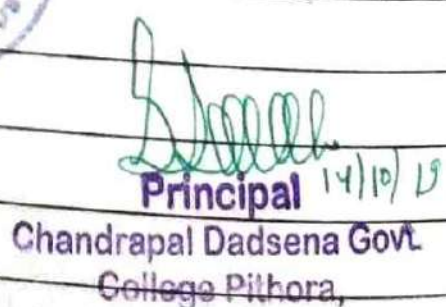 Principal 14/10/19
Chandrapal Dadsena Govt.
College Pithora,